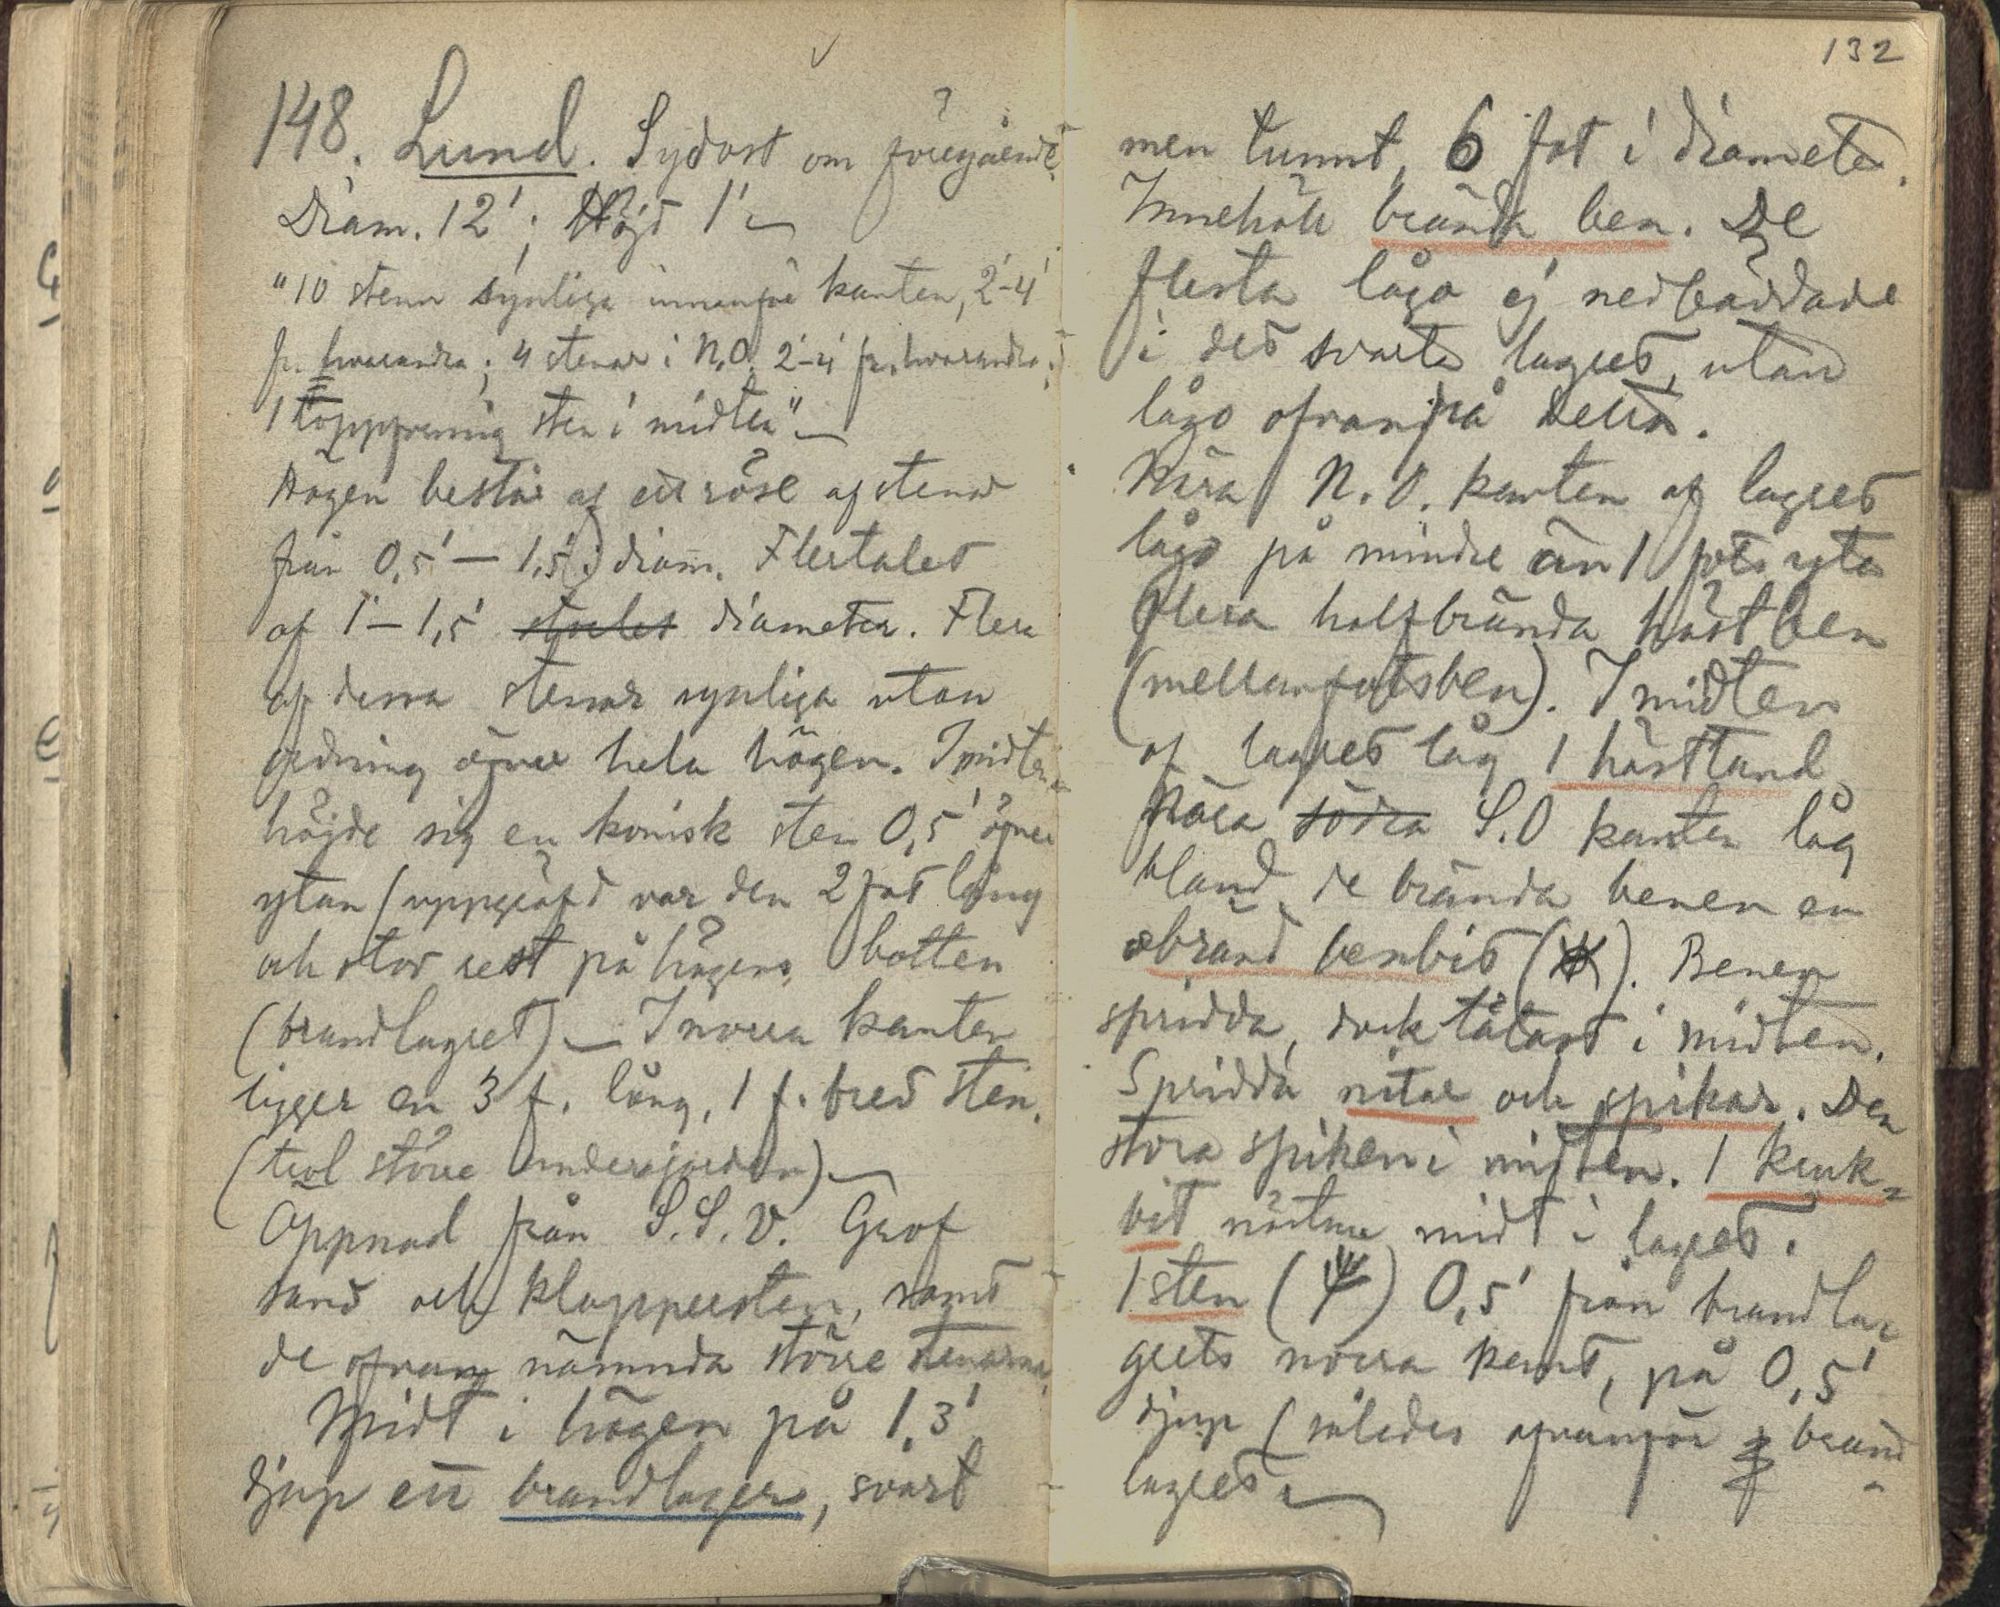 148. Lund. Sydost om föregående.
Diam. 12'; Höjd 1'
"10 stenar synliga innanför kanten, 2'-4'
fr. hvarandra; 4 stenar i N.O. 2'-4' fr. hvarandra;
1 sten i midten"
Högen består af ett röse af stenar
från 0,5' – 1,5' i diam. Flertalet
af 1' – 1,5' diameter. Flera
af dessa stenar synliga utan
ordning öfver hela högen. I midten
höjde sig en konisk sten 0,5' öfver
ytan (uppgräfd var den 2 fot lång
och stod rest på högens botten
(brandlagret) – I norra kanten
ligger en 3 f. lång, 1 f. bred sten.
(trol större under jorden)
Öppnad från S.S.V. Grof
sand och klappersten, samt
de ofvan nämnda större stenarna.
Midt i högen på 1,3'
djup ett brandlager, svart
132
men tunnt, 6 fot i diameter.
Innehöll brända ben. De
flesta lågo ej nedbäddade
i det svarta lagret, utan
lågo ofvanpå detta.
Nära N.O. kanten af lagret
lågo på mindre än 1 fots yta
flera halfbrända hästben
(mellanfotsben). I midten
af lagret låg 1 hästtand
Nära södra S.O kanten låg
bland de brända benen en
obränd benbit ( ). Benen
spridda, dock tätast i midten.
Spridda nitar och spikar. Den
stora spiken i midten. 1 kruk-
bit nästan midt i lagret.
1 sten ( ) 0,5' från brandla-
grets norra kant, på 0,5'
djup (således ofvanför brand-
lagret.